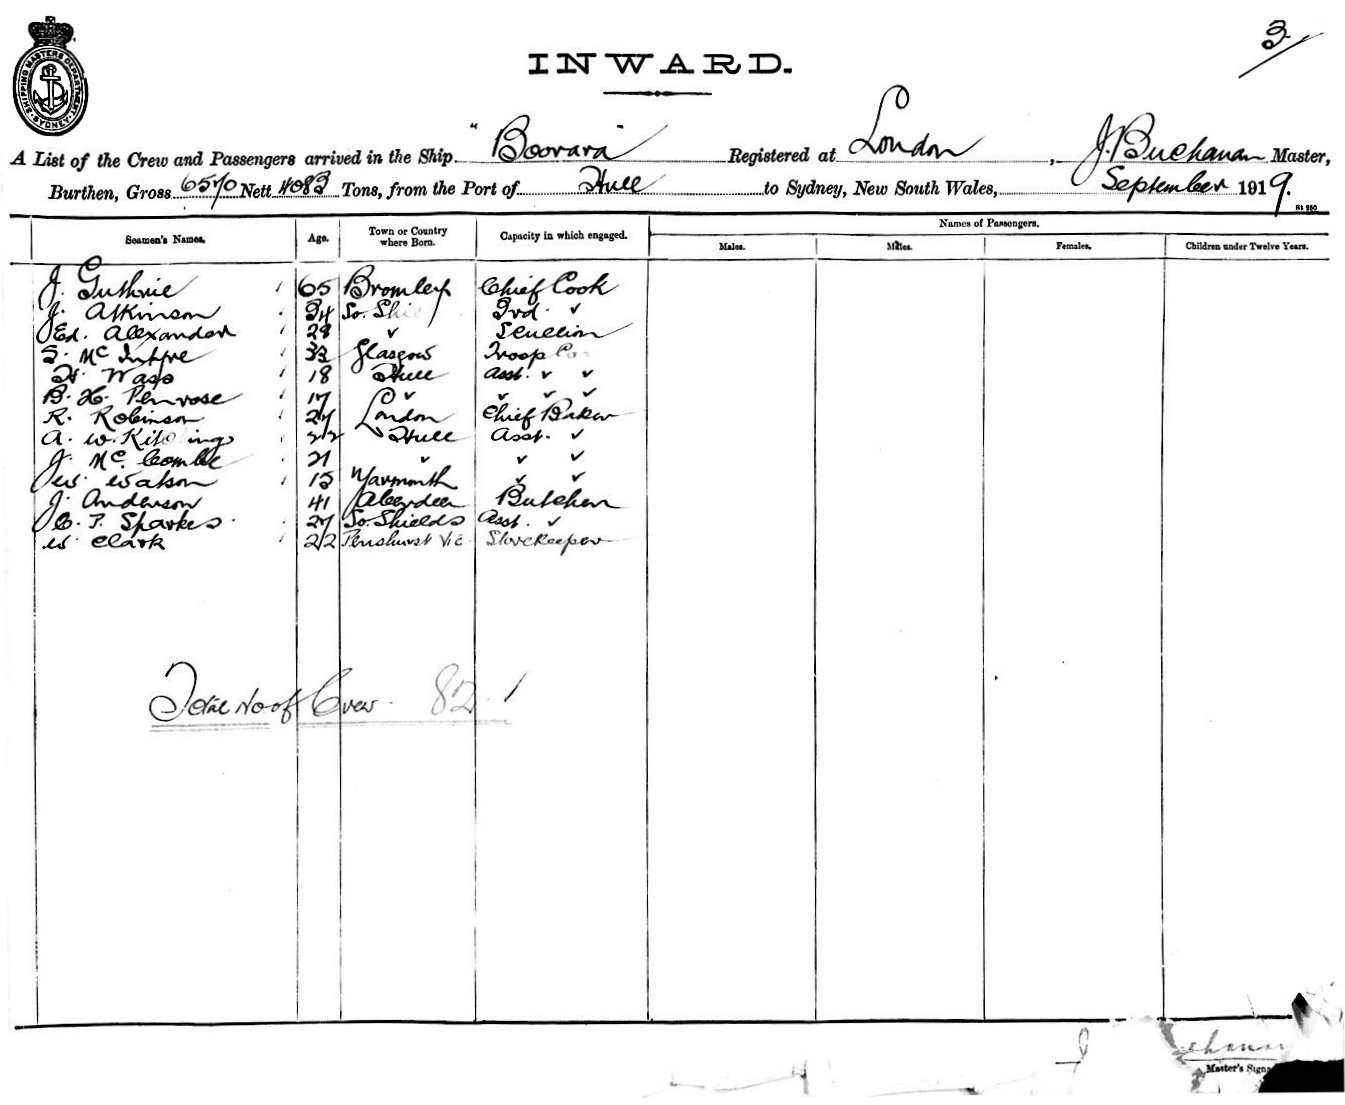 3
SHIPPING MASTERS DEPARTMENT SYDNEY
INWARD.
A List of the Crew and Passengers arrived in the Ship "Boorara" Registered at London, J. Buchanan Master,
Burthen, Gross 6570 Nett 4083 Tons, from the Port of Hull to Sydney, New South Wales, September 1919.
St 250
Seamen's Names. Age. Town or Country where Born. Capacity in which engaged. Names of Passengers.
Males. Males. Females. Children under Twelve Years.
J. Guthrie 65 Bromley Chief Cook
J. Atkinson 34 So. 3rd. ✓
Ed. Alexander 28 ✓ Scullion
S. McIntyre 33 Glasgow Troop
H. Wass 18 Hull Asst. ✓ ✓
B. H. Penrose 17 ✓ ✓ ✓ ✓
R. Robinson 27 London Chief Baker
A. W. 22 Hull Asst. ✓
J. McCombe 21 ✓ ✓ ✓
W. Watson 15 Yarmouth ✓ ✓
J. Anderson 41 Aberdeen Butcher
C. T. Sparkes 27 So. Shields Asst. ✓
W. Clark 22 Penshurst Vic Storekeeper
Total No of Crew. 82
Master's